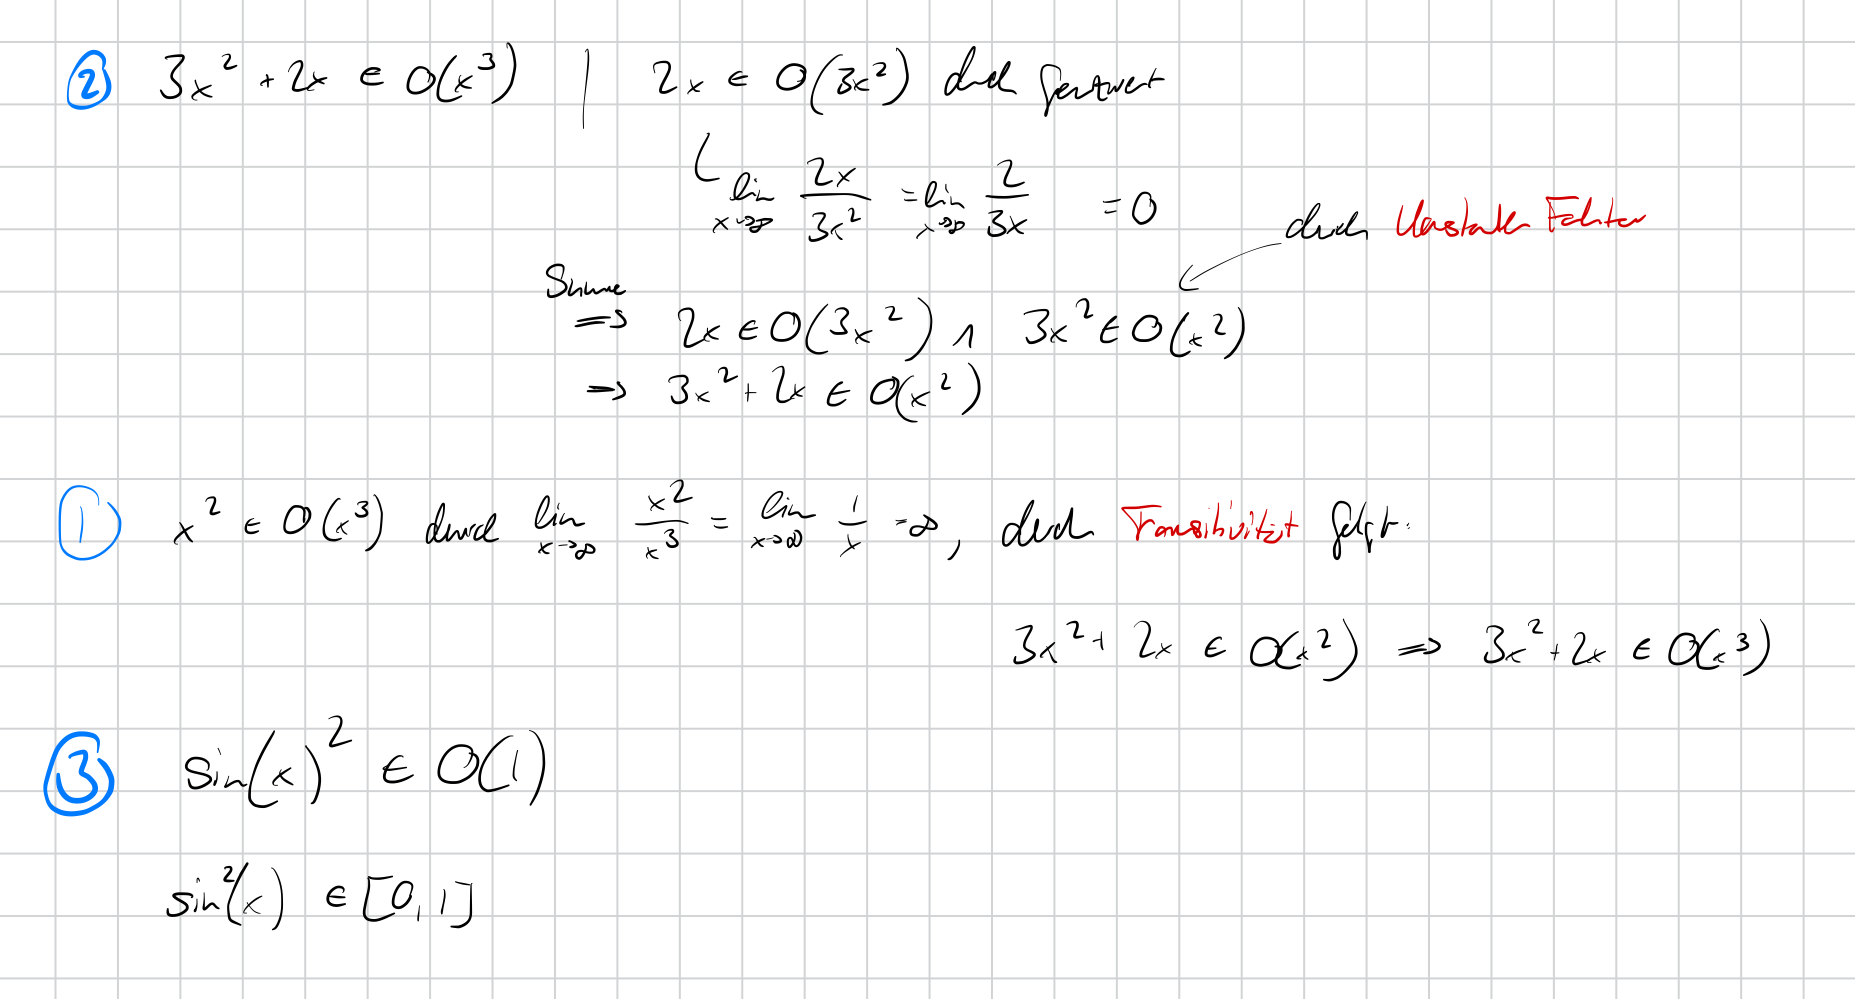 ② 3x² + 2x ∈ O(x³) | 2x ∈ O(3x²) durch Grenzwert
lim x→∞ 2x/3x² = lim x→∞ 2/3x = 0
durch Konstanter Faktor
Summe
⇒ 2x ∈ O(3x²) ∧ 3x² ∈ O(x²)
⇒ 3x² + 2x ∈ O(x²)
① x² ∈ O(x³) durch lim x→∞ x²/x³ = lim x→∞ 1/x = ∞, durch Transitivität folgt:
3x² + 2x ∈ O(x²) ⇒ 3x² + 2x ∈ O(x³)
③ sin(x)² ∈ O(1)
sin²(x) ∈ [0,1]